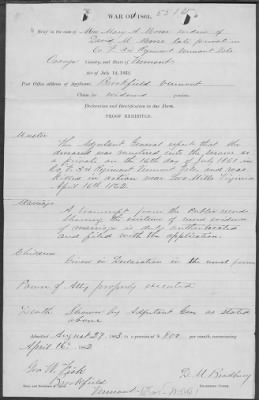 WAR OF 1861.
Brief in the case of Mrs Mary A. Moore widow of
David M. Moore late private in
Co F 3rd Regiment Vermont Vols.
Orange County, and State of Vermont
Act of July 14, 1862.
Post Office address of Applicant, Brookfield Vermont
Claim for widows pension.
Declaration and Certificate in due Form.
PROOF EXHIBITED.
Muster
The Adjutant General report that the
deceased was mustered into the service as
a private on the 16th day of July 1861 in
Co F 3rd Regiment Vermont Vols, and was
killed in action near Lees Mills Virginia
April 16th 1862.
Marriage
A transcript from the Public records
showing the evidence of
of marriage is duly authenticated
and filed with the application.
Children
in Declaration in the
Power of Atty properly executed
Death Shown by Adjutant Gen as stated
above
Admitted August 27 1863 to $8 00 per month, commencing
April 16 1862
Geo W. Fisk
Brookfield
Vermont
D. M. Bradbury